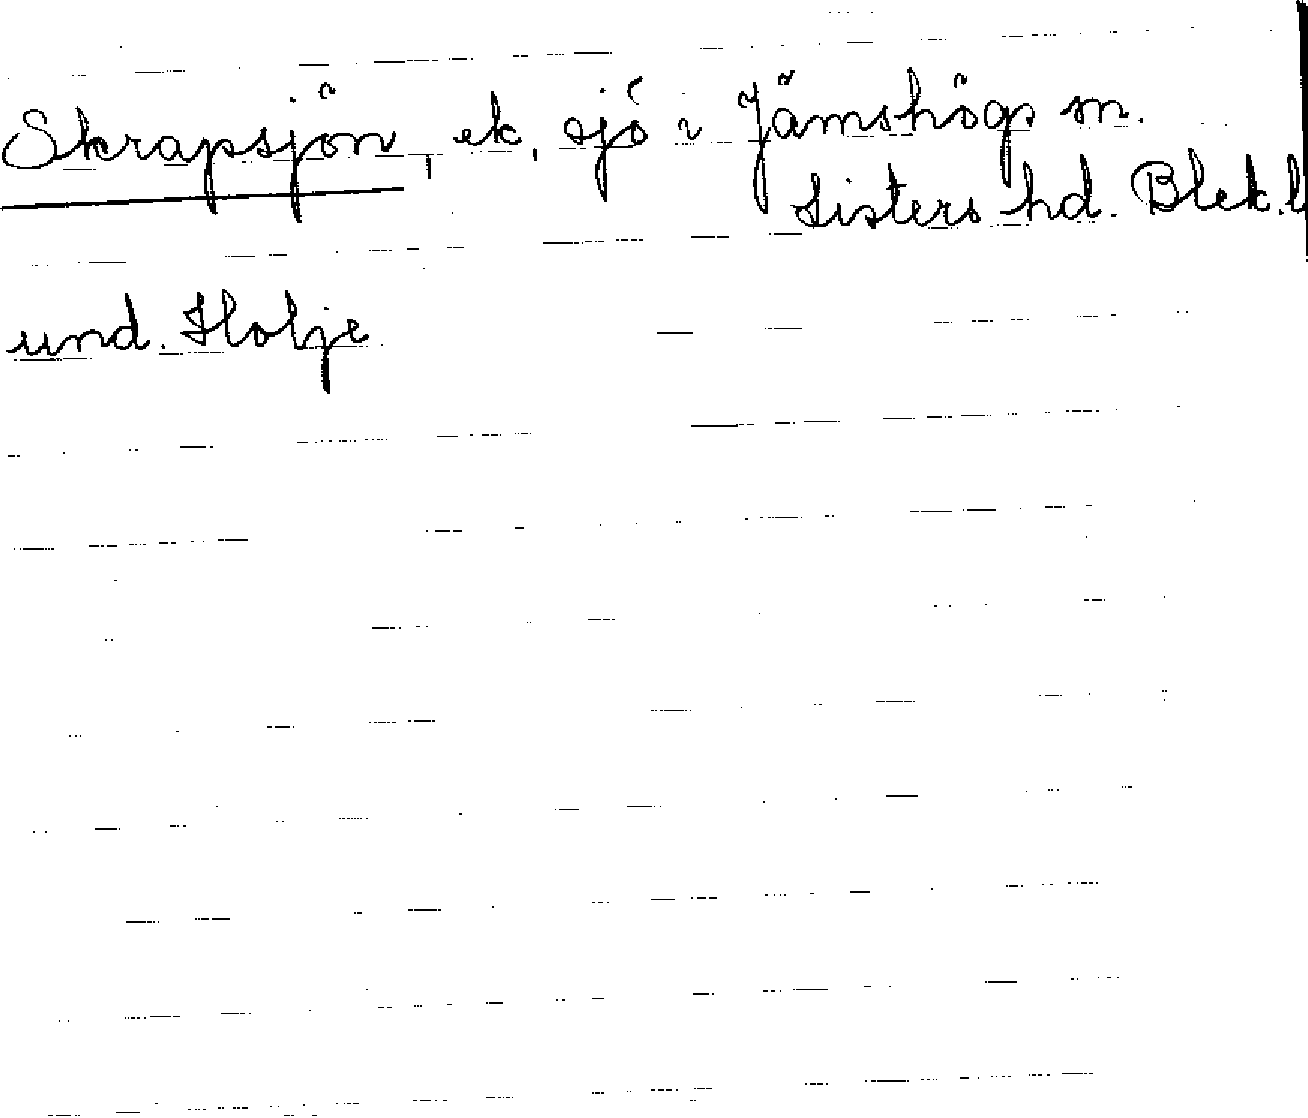 Skrapsjön, ek, sjö i Jämshögs sn.
Listers hd. Blek. l
und. Holje